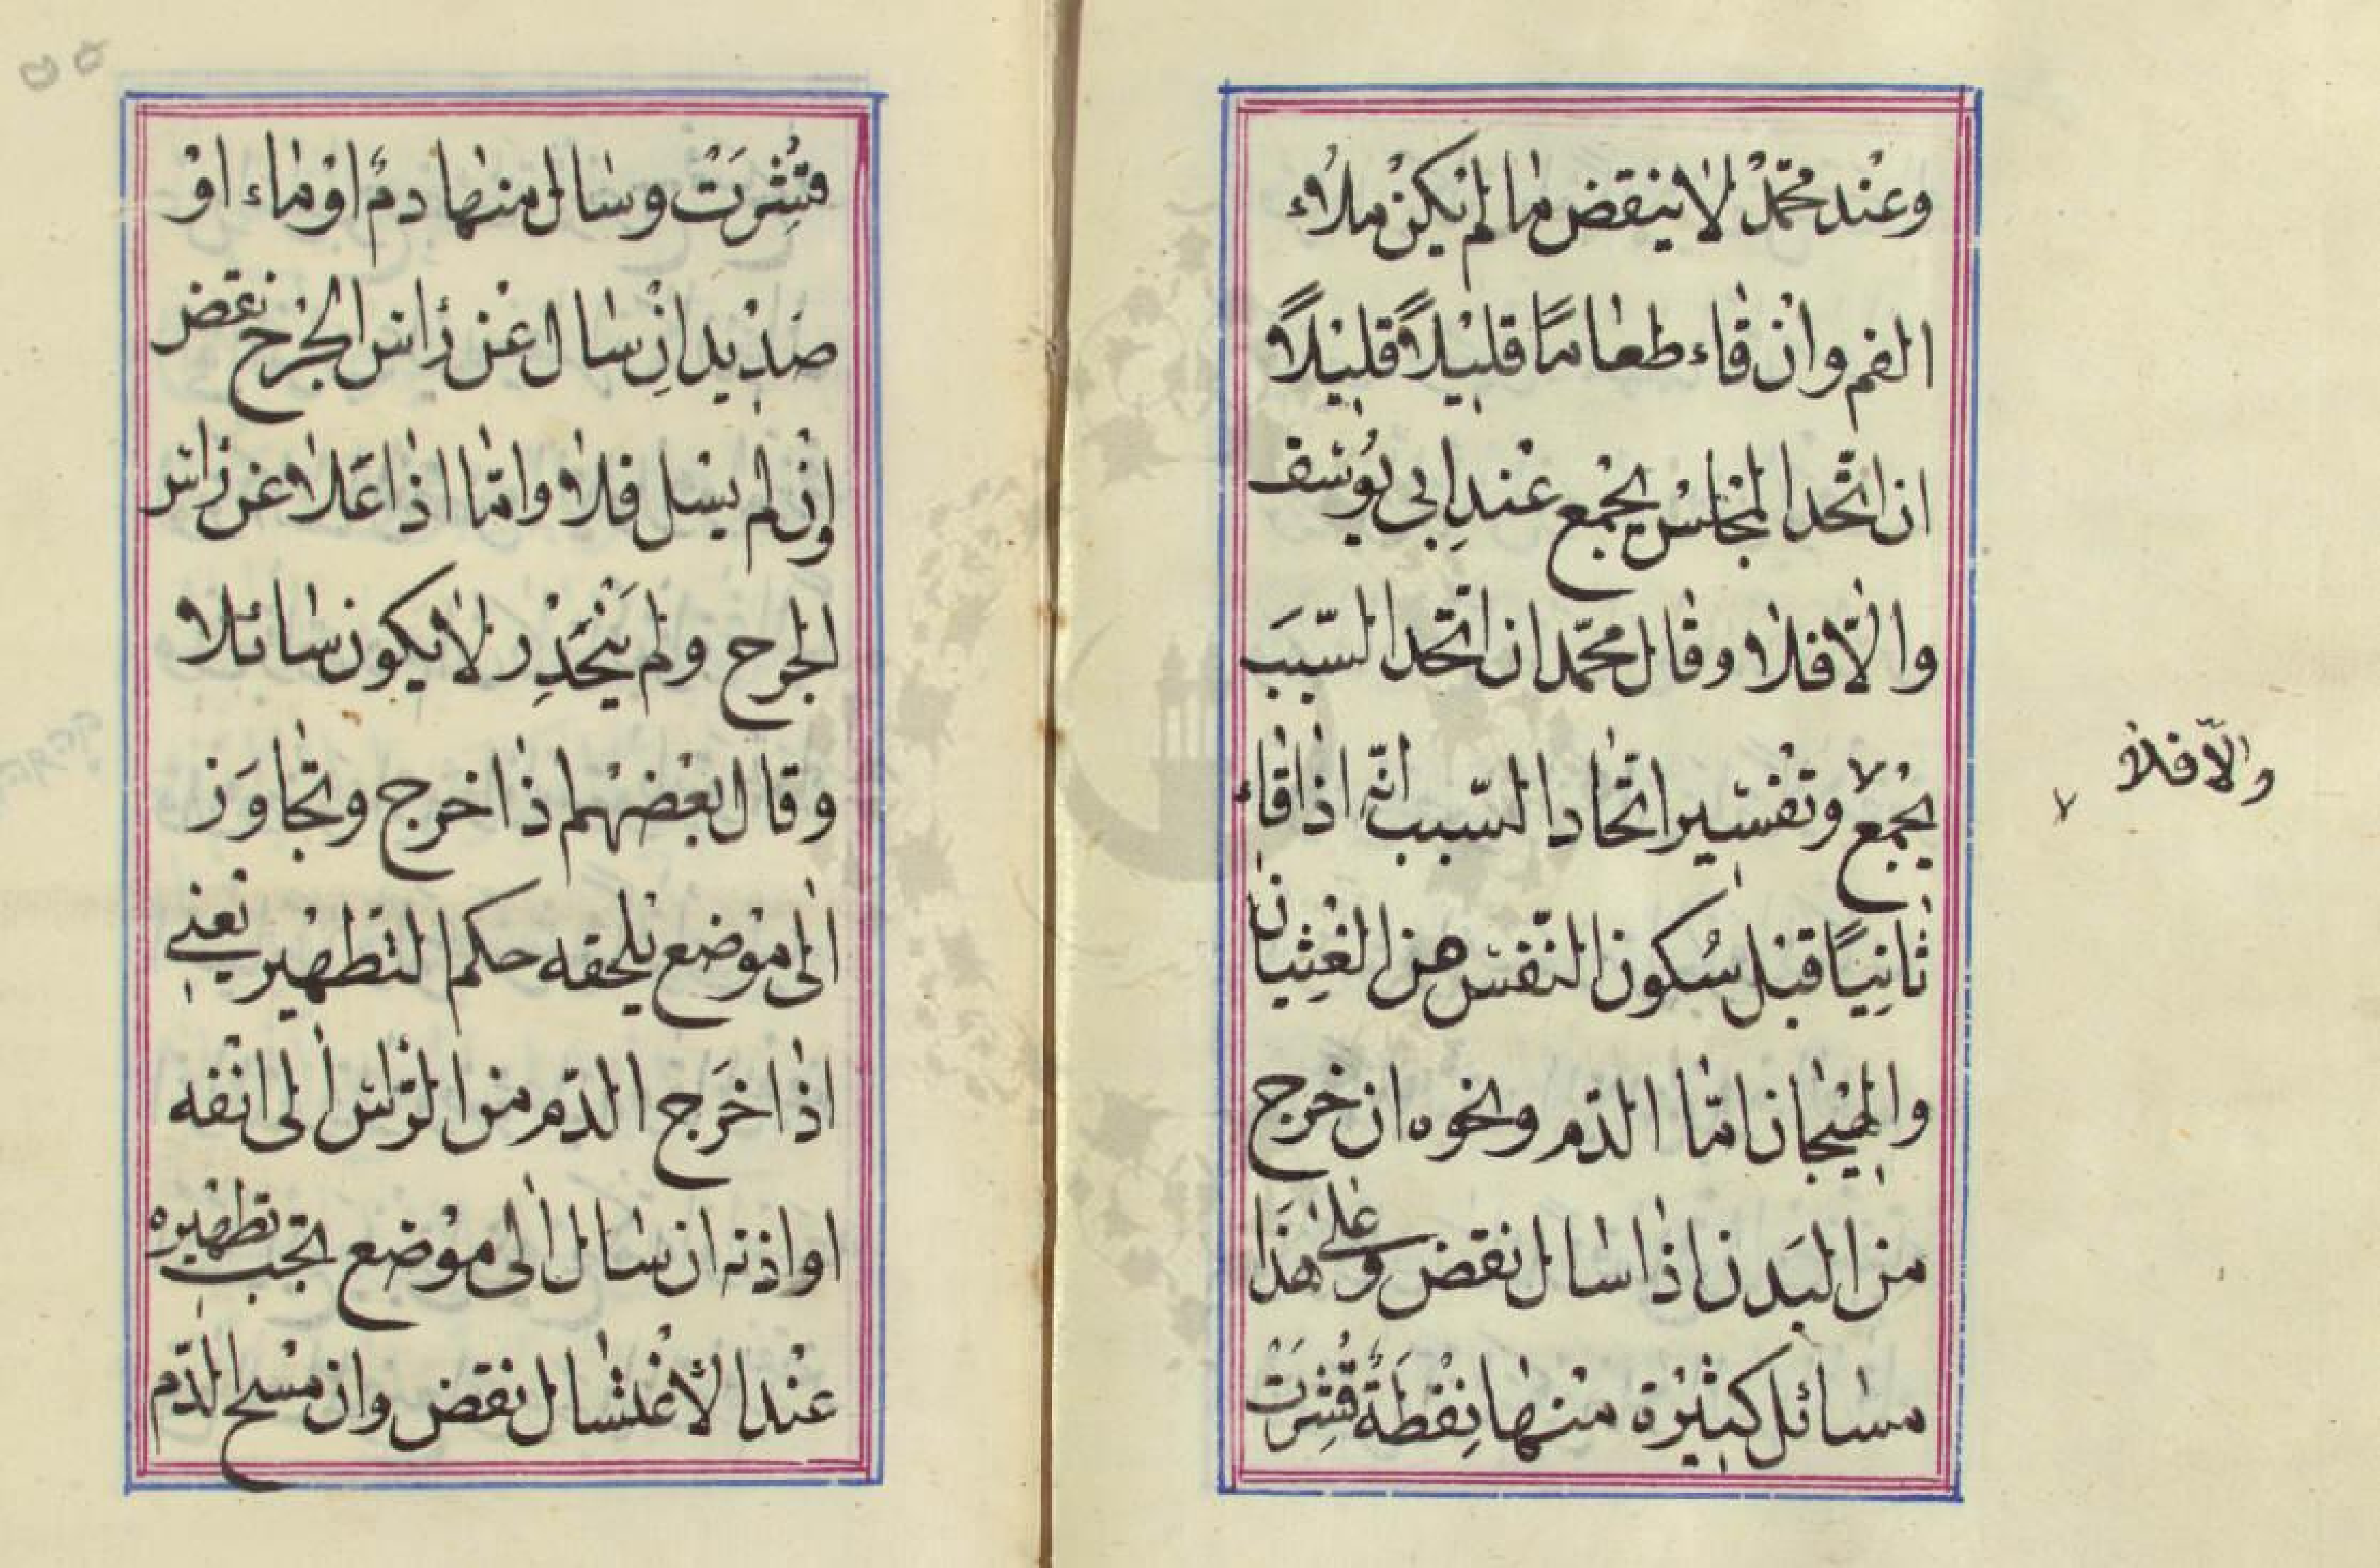 وعند محمّد لا ينقض ما لم يكن ملاء
الفم وان قاء طعامًا قليلاً قليلاً
ان اتّحد المجلس يجمع عند ابي يوسف
والّا فلا وقال محمّد ان اتّحد السّبب
يجمع وتفسير اتّحاد السّبب انّه اذا قاء
ثانِيًا قبل سُكون النّفس من الغثيان
والهيجان امّا الدّم ونحوه ان خرج
من البدن اذا سال نقض وعلى هذا
مسائل كثيرة منها نِفْطَةٌ قُشِرَتْ
والّا فلا
فتُشِرَتْ وسال منها دمٌ او ماء او
صديد ان سال عن رأس الجرح نقض
وان لم يسل فلا وامّا اذا عَلا عن رأس
الجرح ولم يَنْحَدِر لا يكون سائلا
وقال بعضهم اذا خرج وتجاوَز
الى موضع يلحقه حكم التّطهير يعني
اذا خَرَج الدّم من الرّأس الى انفه
او اذنه ان سال الى موضع يجب تطهيره
عند الأغتسال نقض وان مسح الدّم